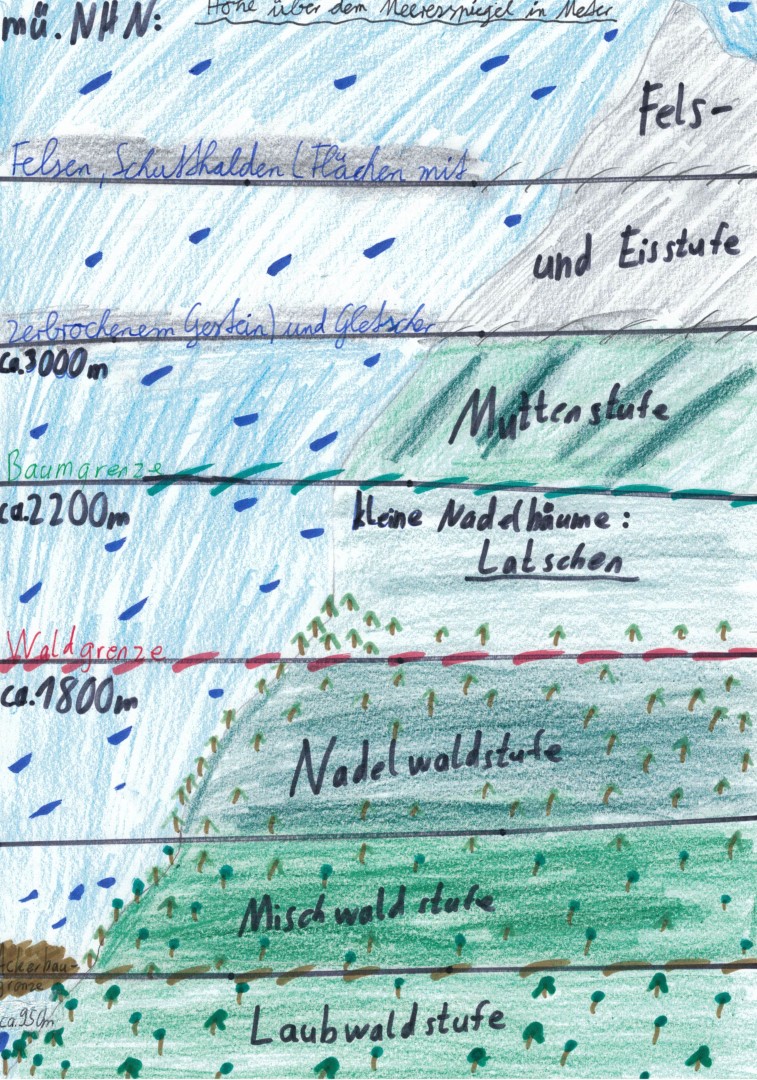 Höhe über dem Meeresspiegel in Meter
mü.NHN:
Fels-
Felsen, Schutthalden (Flächen mit
und Eisstufe
zerbrochenem Gestein) und Gletscher
ca.3000m
Muttenstufe
Baumgrenze
ca.2200m
kleine Nadelbäume:
Latschen
Waldgrenze
ca.1800m
Nadelwaldstufe
Mischwaldstufe
Ackerbau-
grenze
ca.950m
Laubwaldstufe